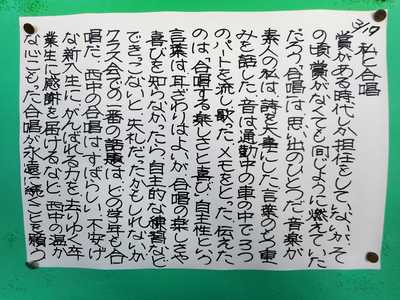 私と合唱
賞がある時代しか担任をしていない。かつて
の頃賞がなくても同じように燃えていた
だろう。合唱は思い出のひとつだ。音楽が
素人の私は、詩を大事にした。言葉のもつ重
みを話した。音は通勤中の車の中で3つ
のパートを流し歌った。メモをとった。伝えた
のは、合唱する楽しさと喜び。自主性という
言葉は耳ざわりはよいが、合唱の楽しさや
喜びを知らなかったら、自主的な練習など
できっこない。失礼だったかもしれないが
クラス会での一番の話題は、どの学年も合
唱だ。西中の合唱は、すばらしい。不安げ
な新入生に、がんばれる力を、去りゆく卒
業生に感謝を届けるなど、西中の温か
な心こもった合唱が永遠に続くことを願う